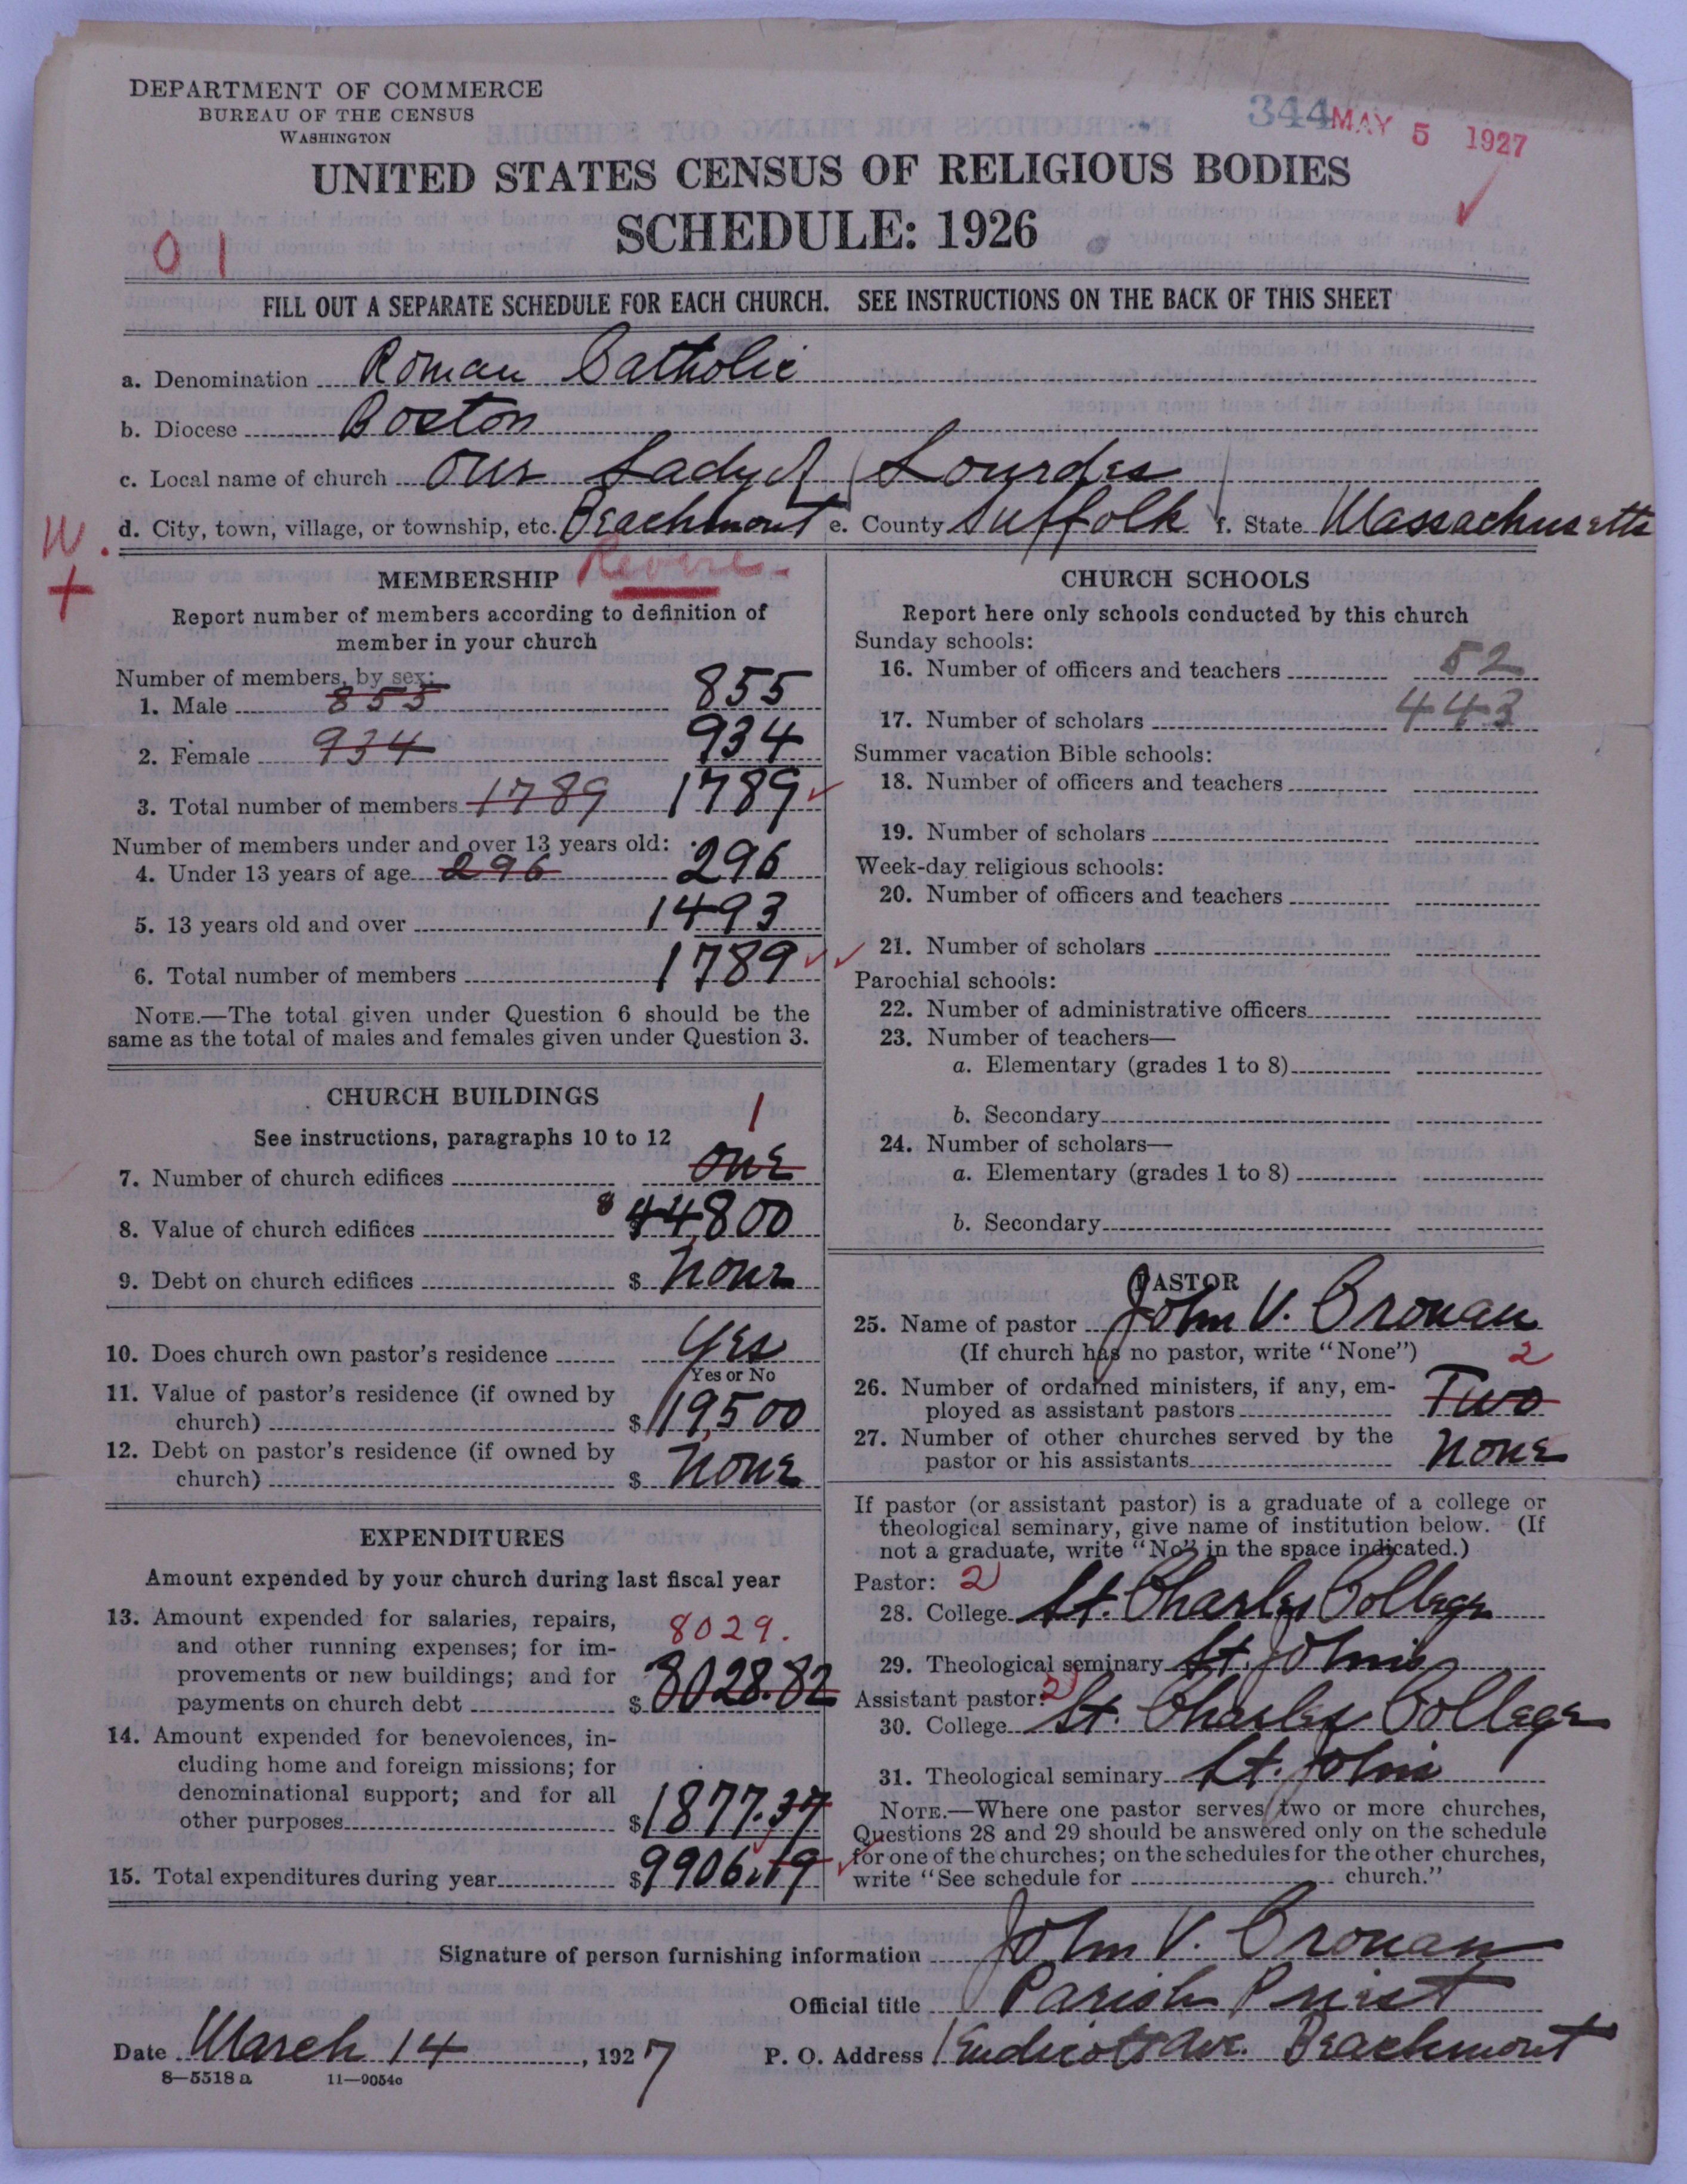 DEPARTMENT OF COMMERCE
BUREAU OF THE CENSUS
WASHINGTON
344 MAY 5 1927
UNITED STATES CENSUS OF RELIGIOUS BODIES
SCHEDULE: 1926
01
FILL OUT A SEPARATE SCHEDULE FOR EACH CHURCH. SEE INSTRUCTIONS ON THE BACK OF THIS SHEET
a. Denomination Roman Catholic
b. Diocese Boston
c. Local name of church Our Lady of Lourdes
d. City, town, village, or township, etc. Beachmont e. County Suffolk f. State Massachusetts
W.
+
Revere
MEMBERSHIP
Report number of members according to definition of
member in your church
Number of members, by sex:
1. Male 855 855
2. Female 934 934
3. Total number of members 1789 1789
Number of members under and over 13 years old:
4. Under 13 years of age 296 296
5. 13 years old and over 1493
6. Total number of members 1789
NOTE.—The total given under Question 6 should be the
same as the total of males and females given under Question 3.
CHURCH BUILDINGS
See instructions, paragraphs 10 to 12
1
7. Number of church edifices one
8. Value of church edifices $ 44,800
9. Debt on church edifices $ none
10. Does church own pastor's residence Yes
Yes or No
11. Value of pastor's residence (if owned by
church) $ 19,500
12. Debt on pastor's residence (if owned by
church) $ none
EXPENDITURES
Amount expended by your church during last fiscal year
13. Amount expended for salaries, repairs, 8029.
and other running expenses; for im-
provements or new buildings; and for
payments on church debt $ 8028.82
14. Amount expended for benevolences, in-
cluding home and foreign missions; for
denominational support; and for all
other purposes $ 1877.37
15. Total expenditures during year $ 9906.19
CHURCH SCHOOLS
Report here only schools conducted by this church
Sunday schools:
16. Number of officers and teachers 52
17. Number of scholars 443
Summer vacation Bible schools:
18. Number of officers and teachers
19. Number of scholars
Week-day religious schools:
20. Number of officers and teachers
21. Number of scholars
Parochial schools:
22. Number of administrative officers
23. Number of teachers—
a. Elementary (grades 1 to 8)
b. Secondary
24. Number of scholars—
a. Elementary (grades 1 to 8)
b. Secondary
PASTOR
25. Name of pastor John V. Cronan
(If church has no pastor, write "None") 2
26. Number of ordained ministers, if any, em-
ployed as assistant pastors Two
27. Number of other churches served by the
pastor or his assistants none
If pastor (or assistant pastor) is a graduate of a college or
theological seminary, give name of institution below. (If
not a graduate, write "No" in the space indicated.)
Pastor: 2
28. College St. Charles College
29. Theological seminary St. Johns
Assistant pastor: 2
30. College St. Charles College
31. Theological seminary St. Johns
NOTE.—Where one pastor serves two or more churches,
Questions 28 and 29 should be answered only on the schedule
for one of the churches; on the schedules for the other churches,
write "See schedule for church."
Signature of person furnishing information John V. Cronan
Official title Parish Priest
Date March 14, 1927 P. O. Address 1 Endicott Ave. Beachmont
8—5518 a 11—9054c